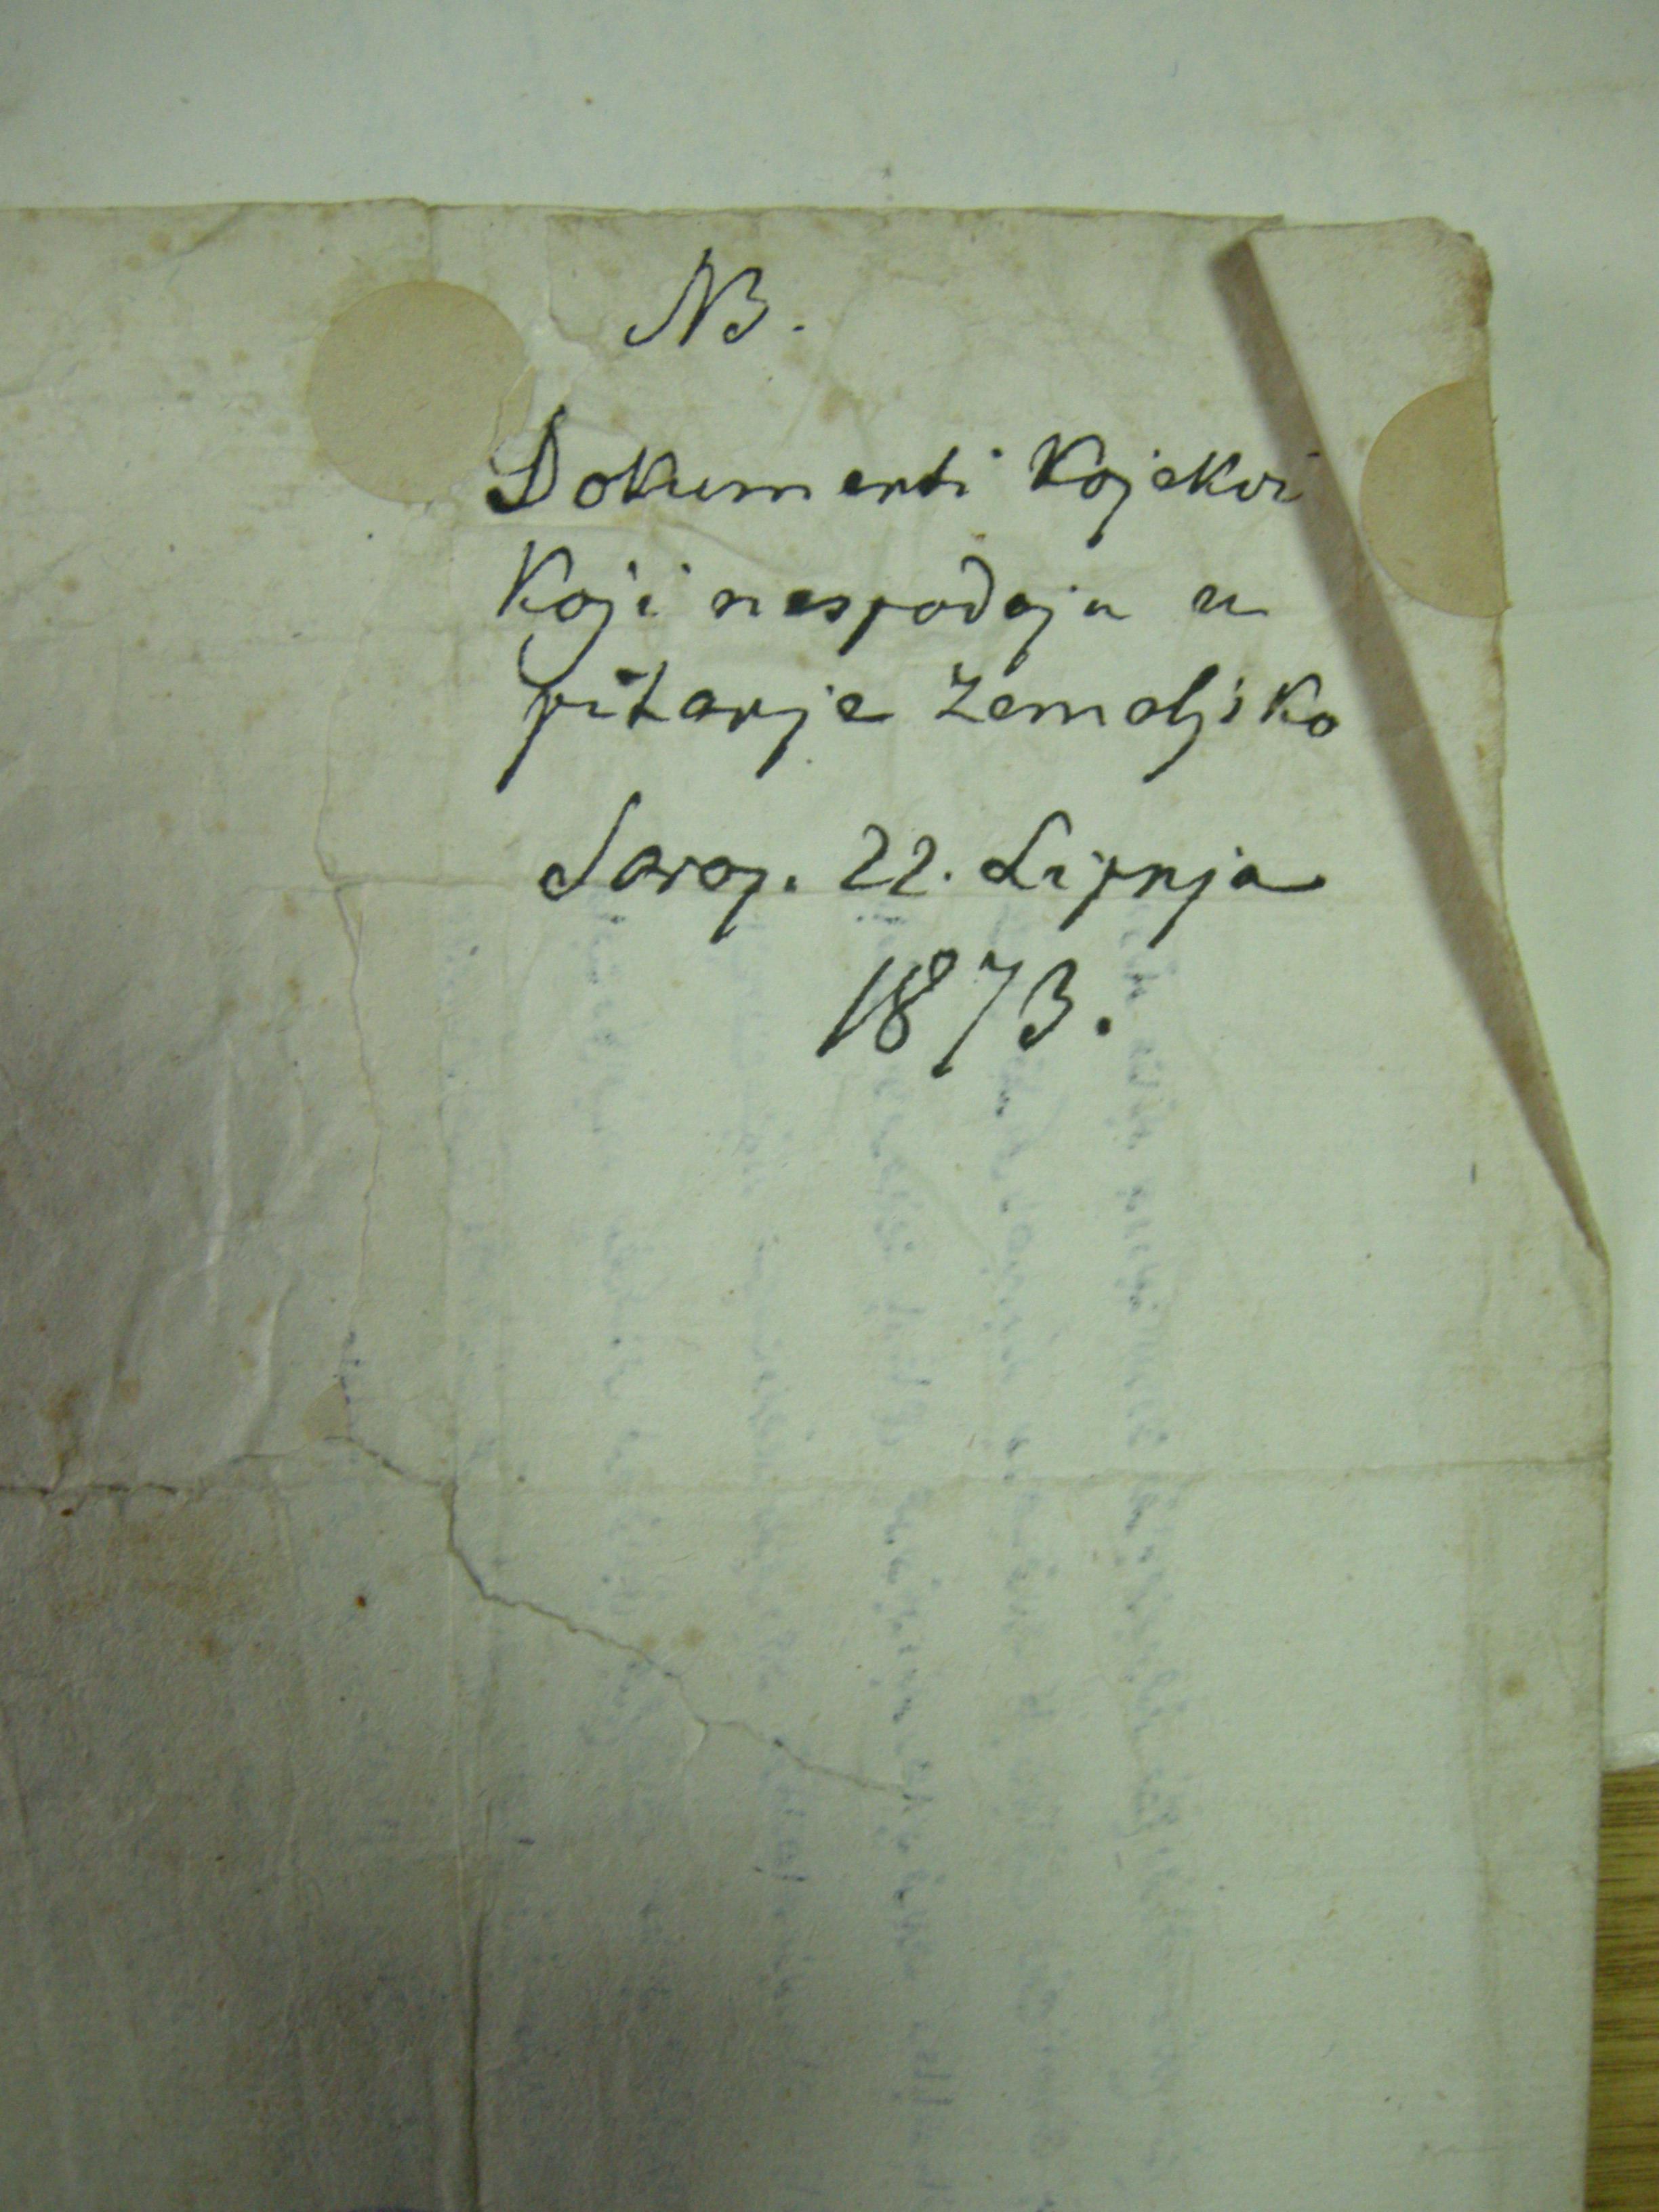 NB.
Dokumenti Kojekvi
Koji nespadaju u
pitanje Zemaljsko
Saraj. 22. Lipnja
1873.